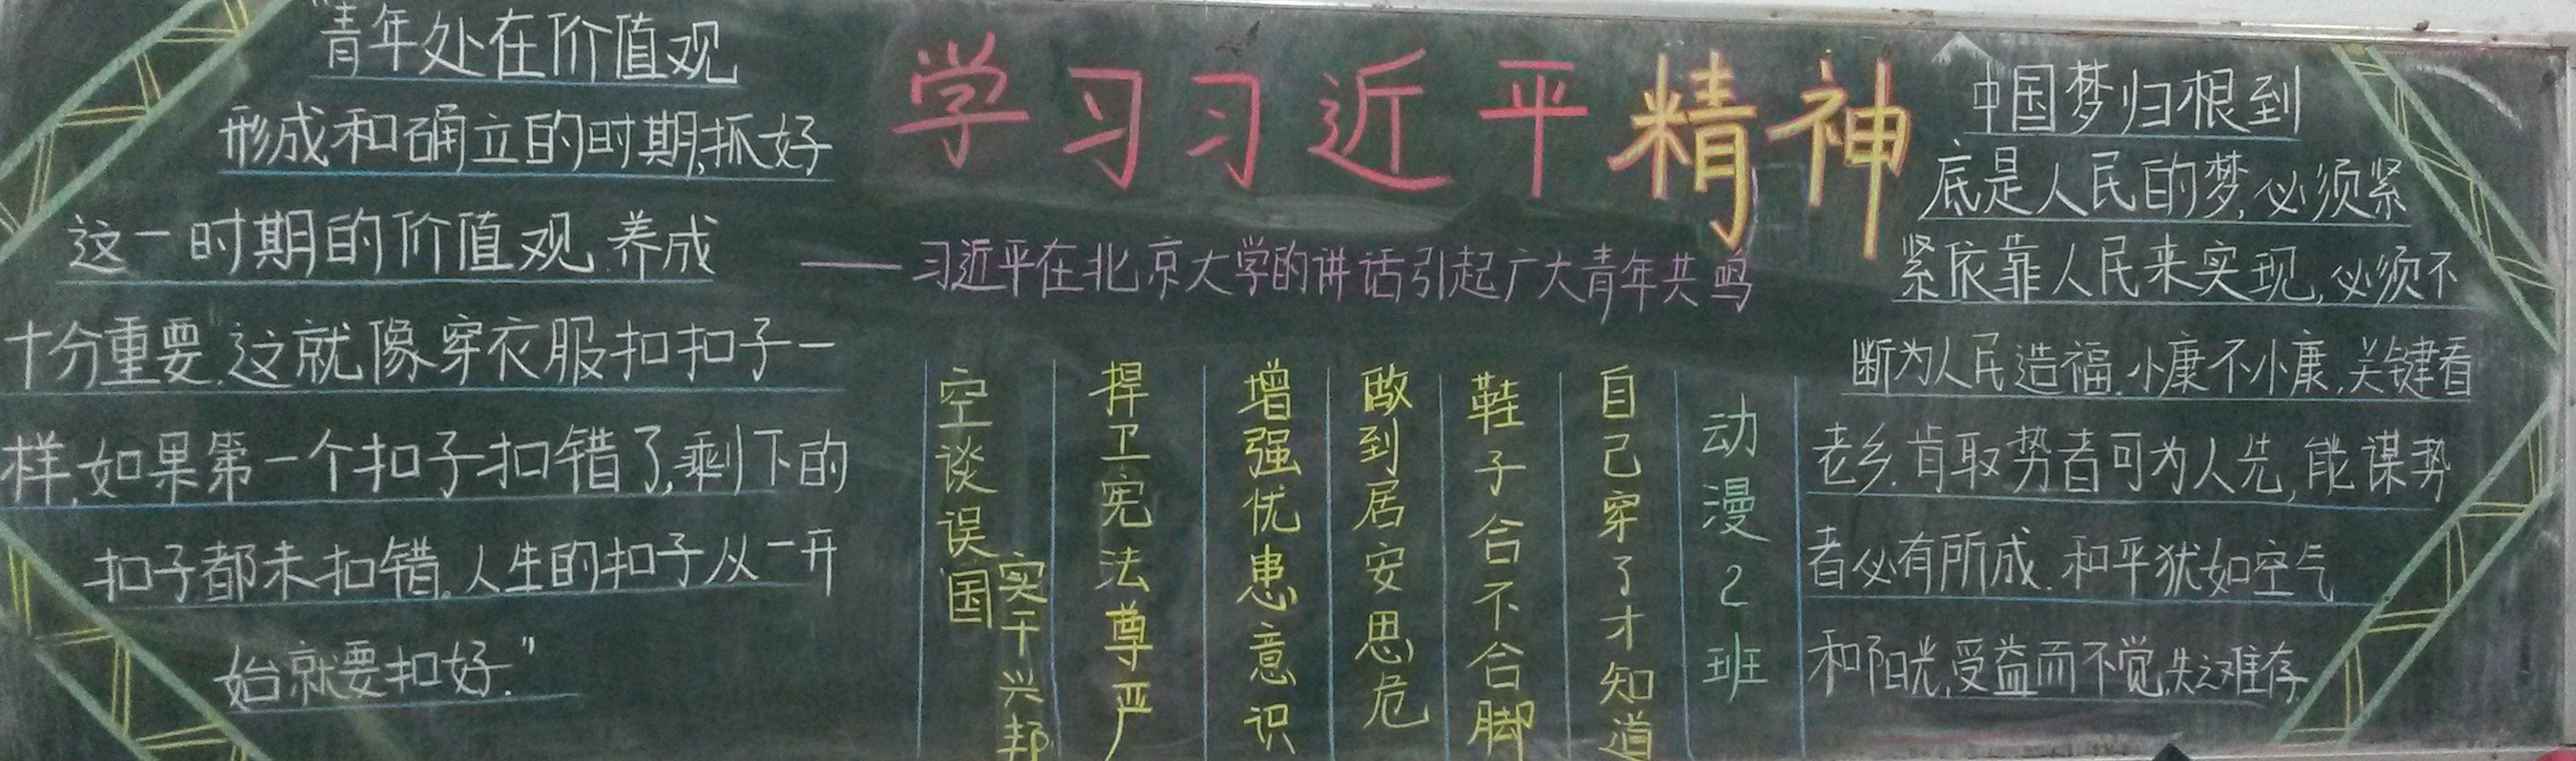 "青年处在价值观
形成和确立的时期,抓好
这一时期的价值观.养成
十分重要.这就像穿衣服扣扣子一
样,如果第一个扣子扣错了,剩下的
扣子都未扣错.人生的扣子从一开
始就要扣好."
学习习近平精神
——习近平在北京大学的讲话引起广大青年共鸣
空谈误国
实干兴邦
捍卫宪法尊严
增强忧患意识
做到居安思危
鞋子合不合脚
自己穿了才知道
动漫2班
中国梦归根到
底是人民的梦,必须紧
紧依靠人民来实现,必须不
断为人民造福.小康不小康,关键看
老乡.肯取势者可为人先,能谋势
者必有所成.和平犹如空气
和阳光,受益而不觉,失之难存.